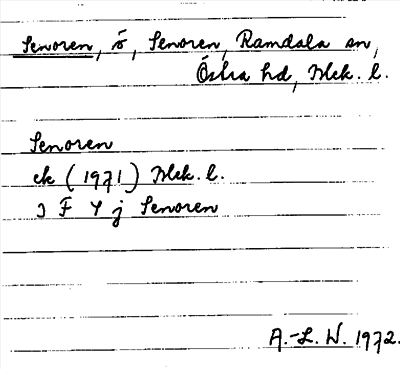 Senoren, ö, Senoren, Ramdala sn,
Östra hd, Blek. l.
Senoren
ek (1971) Blek. l.
Ɔ F Y j Senoren
A.-L. W. 1972.